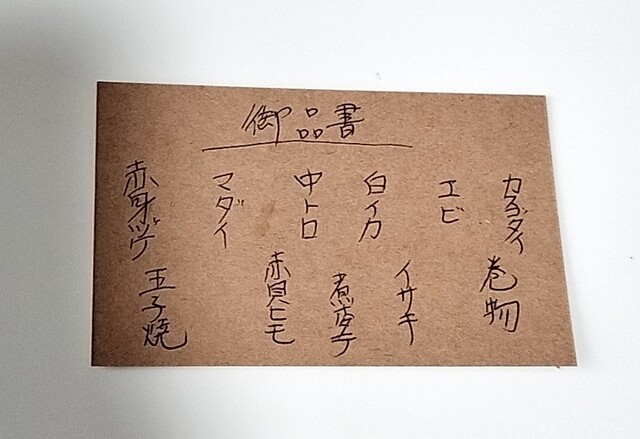 御品書
エビ
白イカ
中トロ
マダイ
赤身ヅケ
巻物
イサキ
煮穴子
赤貝ヒモ
玉子焼